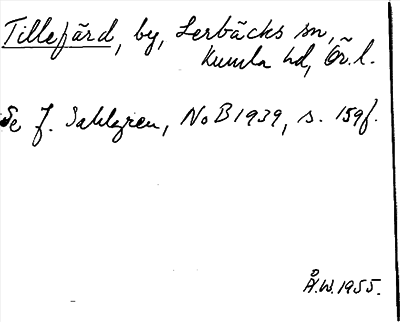 Tillefärd, by, Lerbäcks sn,
Kumla hd, Ör. l.
Se J. Sahlgren, NoB 1939, s. 159f.
Å.W. 1955.